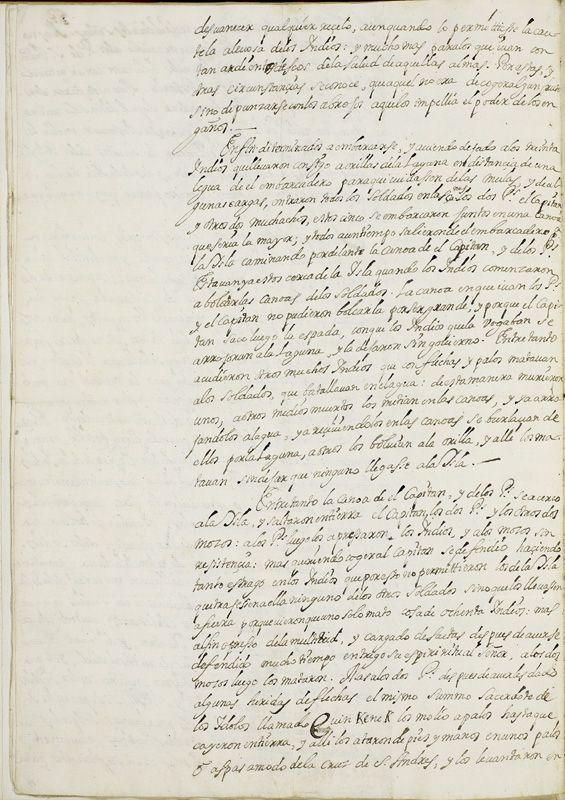 desvanecer qualquier recelo, aunquando lo permittiesse la cau
tela alevosa de los Indios: y mucho mas para los que ivan con
tan ardientes deseos de la salud de aquellas almas. Por estas, y
tras circunstancias se conoce, que aquel no era
sino de punzarse con los abrojos a que los impellia el poder de los en
gaños.
En fin determinados a embarcarse, y aviendo dejado a los treinta
Indios que llevaron consigo a orillas de la Laguna en distancia de una
legua de el embarcadero para que cuidassen de las mulas, y de al
gunas cargas, entraron todos los Soldados en las canoas los dos P.^s el Capitan
y otros dos muchachos, estos cinco se embarcaron juntos en una canoa
que seria la mayor; y todos a un tiempo salieron de el embarcadero p.^a
la Isla caminando por delante la Canoa de el Capitan, y de los P.^s
Estavan ya estos cerca de la Isla quando los Indios comenzaron
a bolcar las canoas de los soldados. La canoa en que ivan los P.^s
y el Capitan no pudieron bolcarla por ser grande, y porque el Capi
tan saco luego la espada, con que los Indios que la vogaban se
arrojaron a la Laguna, y la dejaron sin govierno. Entretanto
acudieron otros muchos Indios que con flechas y palos matavan
a los soldados, que batallavan en el agua: de esta manera murieron
unos, a otros medios muertos los metian en las canoas, y ya arro
jandolos al agua, y ya reziviendolos en las canoas se burlavan de
ellos por la Laguna, a otros los bolvian a la orilla, y alli los ma
tavan sin dejar que ninguno llegasse a la Isla.
Entretanto la Canoa de el Capitan, y de los P.^s se acerco
a la Isla, y saltaron en tierra el Capitan, los dos P.^s y los otros dos
mozos: a los P.^s luego los apresaron los Indios, y a los mozos sin
resistencia: mas queriendo coger al Capitan se defendio haziendo
tanto estrago en los Indios que por esto no permittieron los de la Isla
que entrasse en ella ninguno de los otros Soldados sino que los llevassen
afuera porque vieron que uno solo mato cosa de ochenta Indios: mas
al fin opreso de la multitud, y cargado de saetas despues de averse
defendido mucho tiempo entrego su espiritu al Señor, a los dos
mozos luego los mataron. Mas a los dos P.^s despues de averles dado
algunas heridas de flechas el mismo summo sacerdote de
los Idolos llamado Cuin Kenek los molio a palos hasta que
cayeron en tierra, y alli los ataron de pies y manos en unos palos
ô aspas a modo de la Cruz de S. Andres, y los levantaron en